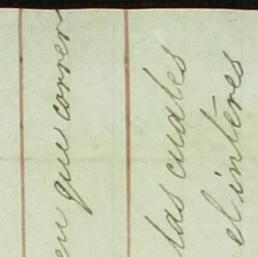 en que corren
las cuales
el interes